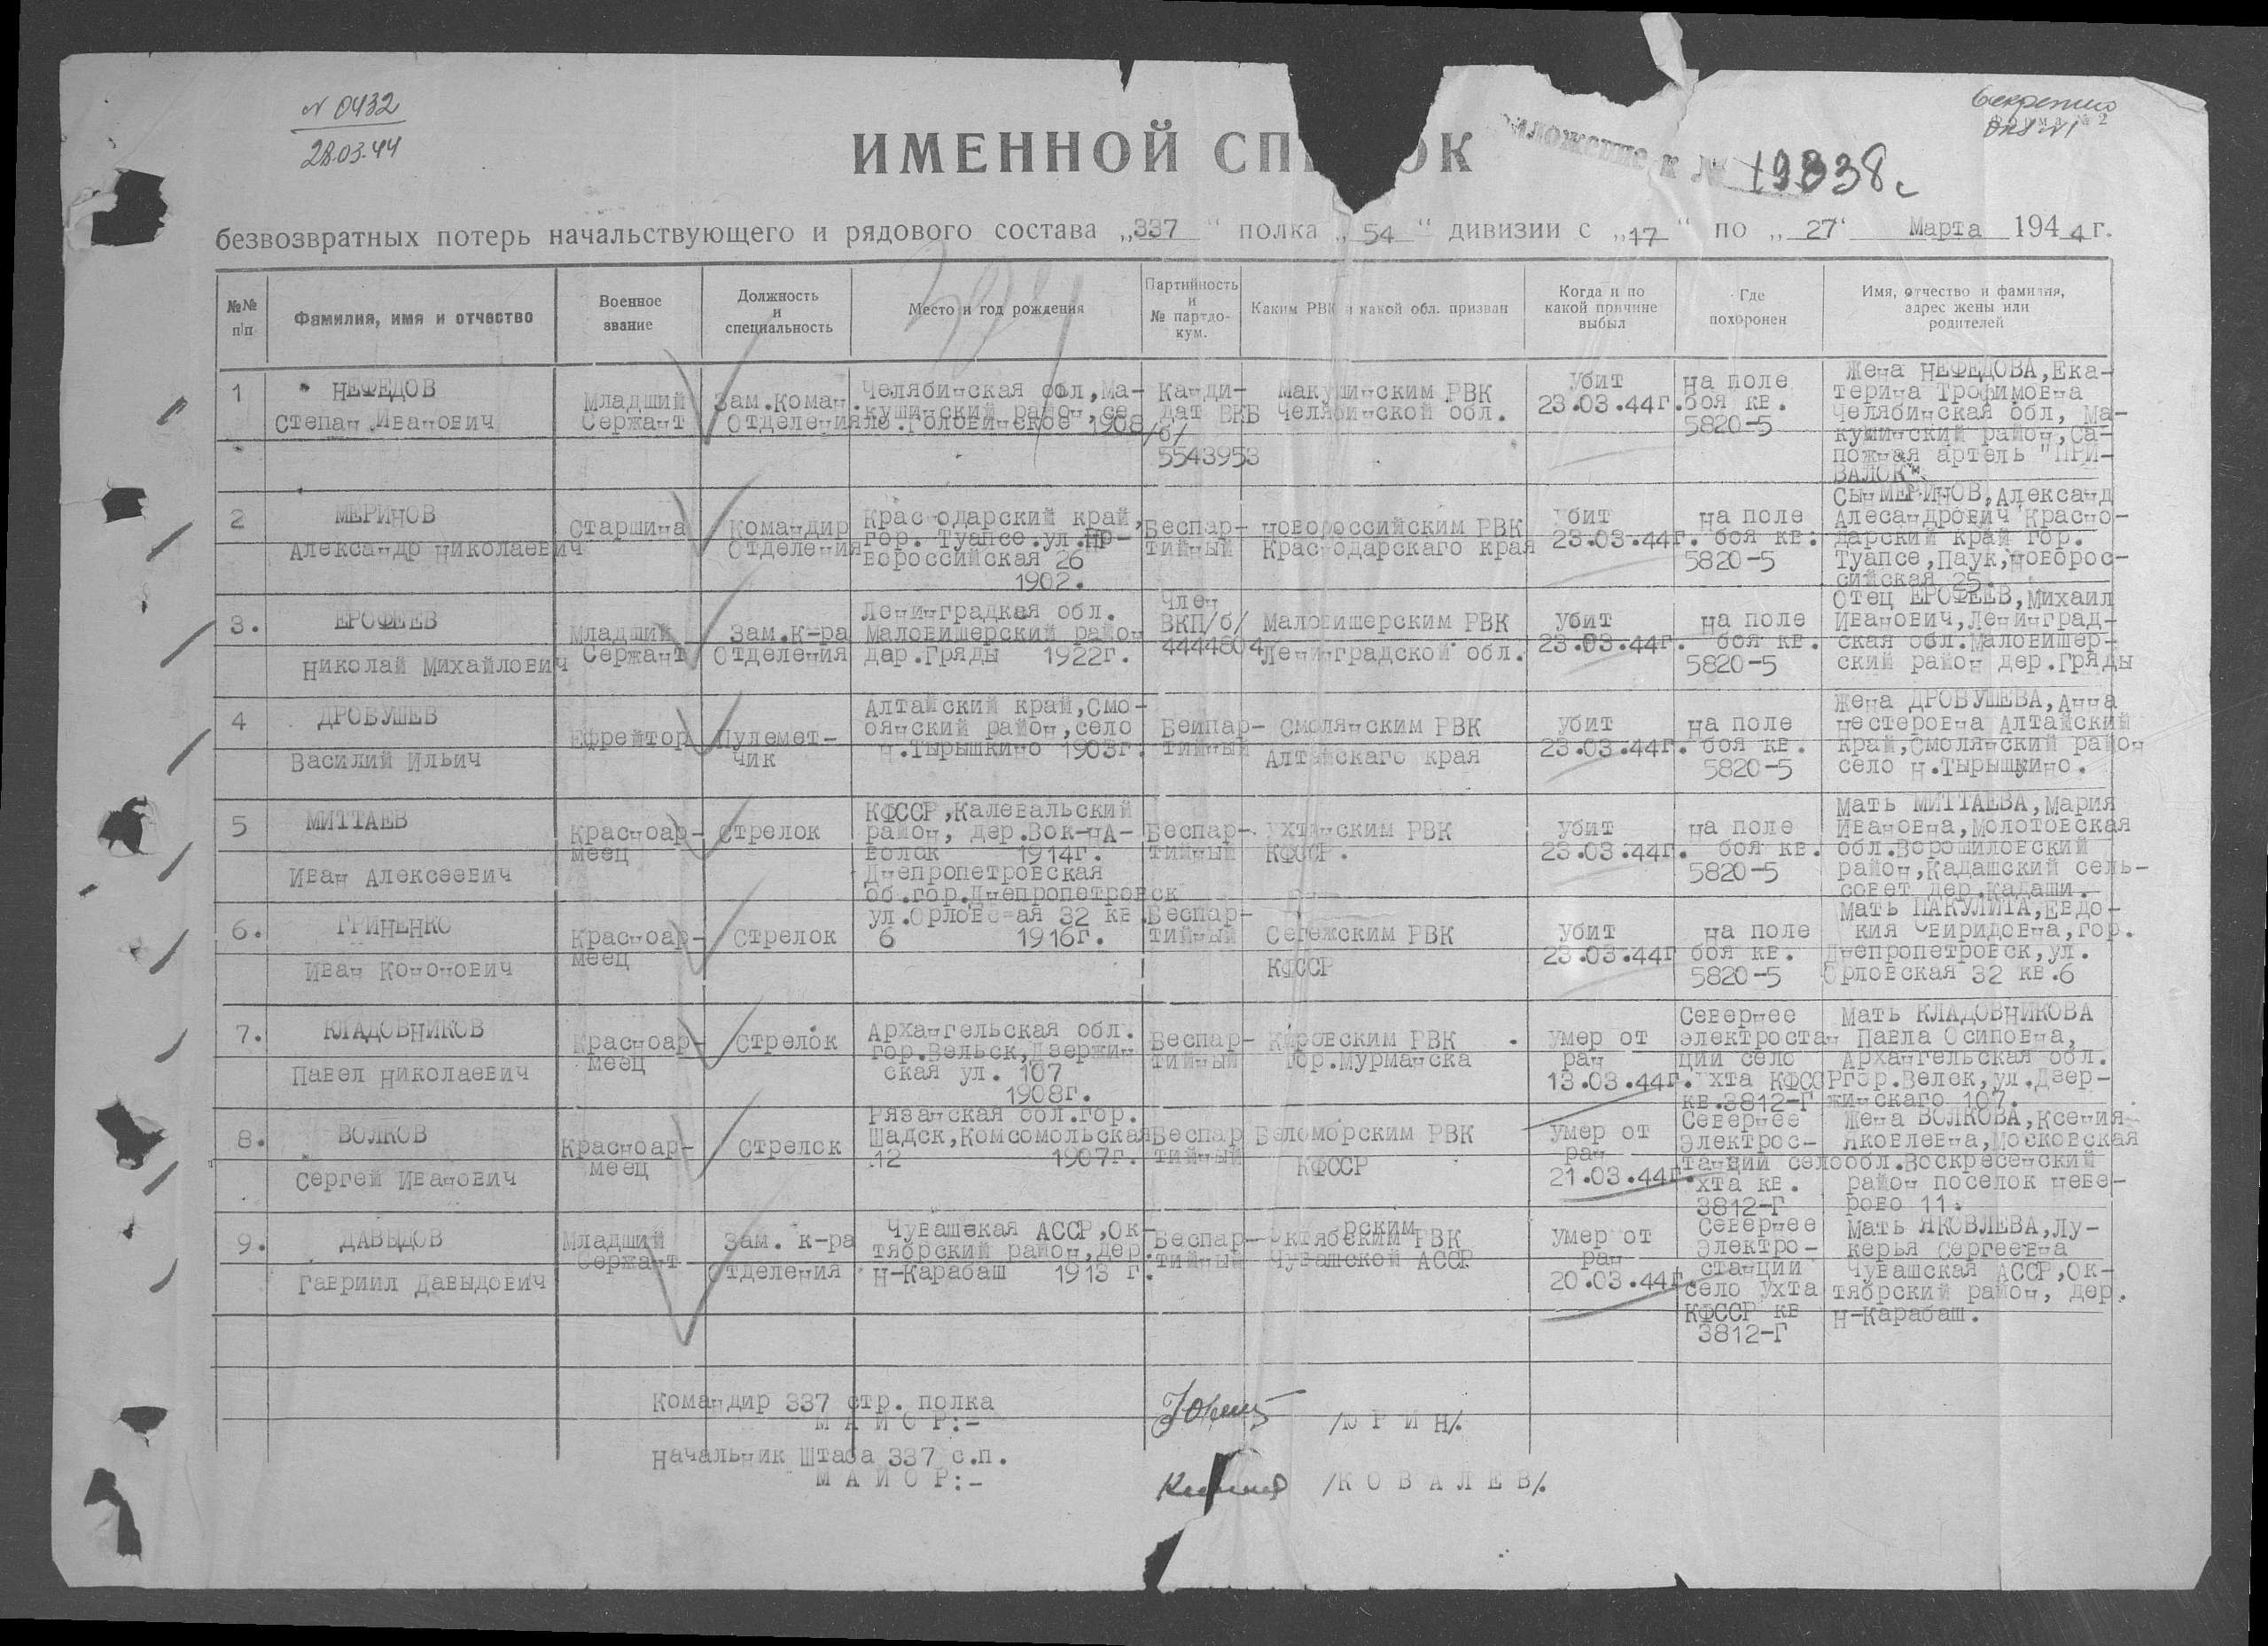 № 0432
28.03.44
Секретно
Форма № 2
экз №1
ИМЕННОЙ СП ОК
иложение к № 19338с
безвозвратных потерь начальствующего и рядового состава „337“ полка „54“ дивизии с „17“ по „27“ Марта 1944г.
№№ п/п
Фамилия, имя и отчество
Военное звание
Должность и специальность
Место и год рождения
Партийность и № партдо-кум.
Каким РВК и какой обл. призван
Когда и по какой причине выбыл
Где похоронен
Имя, отчество и фамилия, адрес жены или родителей
1
НЕФЕДОВ
Степан Иванович
Младший
Сержант
Зам.Коман.
Отделения
Челябинская обл,Ма-
кушинский район,се
ло.Головинское 1908
Канди-
дат ВКБ
/б/
5543953
Макушинским РВК
Челябинской обл.
Убит
23.03.44г.
на поле
боя кв.
5820-5
Жена НЕФЕДОВА,Ека-
терина Трофимовна
Челябинская обл, Ма-
кушинский район,Са-
пожная артель "ПРИ-
ВАЛОК".
2
МЕРИНОВ
Александр Николаевич
Старшина
Командир
Отделения
Краснодарский край,
гор. Туапсе.ул.Нр-
вороссийская 26
1902.
Беспар-
тийный
Новороссийским РВК
Краснодарскаго края
Убит
23.03.44г.
на поле
боя кв.
5820-5
Сын МЕРИНОВ,Александ
Алесандрович Красно-
дарский край гор.
Туапсе,Паук,Новорос-
сийская 25.
3.
ЕРОФЕЕВ
Николай Михайлович
Младший
Сержант
Зам.К-ра
Отделения
Ленинградкая обл.
Маловишерский район
дар.Гряды 1922г.
Член
ВКП/б/
4444804
Маловишерским РВК
Ленинградской обл.
Убит
23.03.44г.
на поле
боя кв.
5820-5
Отец ЕРОФЕЕВ,Михаил
Иванович,Ленинград-
ская обл.Маловишер-
ский район дер.Гряды
4
ДРОБУШЕВ
Василий Ильич
Ефрейтор
Пулемет-
чик
Алтайский край,Смо-
оянский район,село
Н.Тырышкино 1903г.
Беипар-
тийный
Смолянским РВК
Алтайскаго края
Убит
23.03.44г.
на поле
боя кв.
5820-5
Жена ДРОБУШЕВА,Анна
Нестеровна Алтайский
край,Смолянский район
село Н.Тырышкино.
5
МИТТАЕВ
Иван Алексеевич
Красноар-
меец
Стрелок
КФССР,Калевальский
район, дер.Вок-НА-
волок 1914г.
Беспар-
тийный
Ухтинским РВК
КФССР.
Убит
23.03.44г.
на поле
боя кв.
5820-5
Мать МИТТАЕВА,Мария
Ивановна,Молотовская
обл.Ворошиловский
район,Кадашский сель-
совет дер.Кадаши.
6.
ГРИНЕНКО
Иван Кононович
Красноар-
меец
Стрелок
Днепропетровская
об.гор.Днепропетровск
ул.Орловская 32 кв.
6 1916г.
Беспар-
тийный
Сегежским РВК
КФССР
Убит
23.03.44г
на поле
боя кв.
5820-5
Мать ПАКУЛИТА,Евдо-
кия Свиридовна,гор.
Днепропетровск,ул.
Орловская 32 кв.6
7.
КЛАДОВНИКОВ
Павел Николаевич
Красноар-
меец
Стрелок
Архангельская обл.
гор.Вельск,Дзержин
ская ул. 107
1908г.
Беспар-
тийный
Кировским РВК
Гор.Мурманска
Умер от
ран
13.03.44г.
Севернее
электростан
ции село
Ухта КФССР
кв.3812-Г
Мать КЛАДОВНИКОВА
Павла Осиповна,
Архангельская обл.
гор.Велек,ул.Дзер-
жинскаго 107.
8.
ВОЛКОВ
Сергей Иванович
Красноар-
меец
Стрелок
Рязанская обл.гор.
Шадск,Комсомольская
12 1907г.
Беспар
тийный
Беломорским РВК
КФССР
Умер от
ран
21.03.44г.
Севернее
Электрос-
танции село
хта кв.
3812-Г
Жена ВОЛКОВА,Ксения
Яковлевна,Московская
обл.Воскресенский
район поселок Неве-
рово 11.
9.
ДАВЫДОВ
Гавриил Давыдович
Младший
Сержант
Зам. к-ра
Отделения
Чувашекая АССР,Ок-
тябрский район,дер.
Н-Карабаш 1913 г.
Беспар-
тийный
рским
Октябским РВК
Чувашской АССР
Умер от
ран
20.03.44г.
Севернее
Электро-
станции
село Ухта
КФССР кв
3812-Г
Мать ЯКОВЛЕВА,Лу-
керья Сергеевна
Чувашская АССР,Ок-
тябрский район, дер.
Н-Карабаш.
Командир 337 стр. полка
М А Й О Р:- /Ю Р И Н/.
Начальник Штаба 337 с.п.
М А Й О Р:- /К О В А Л Е В/.